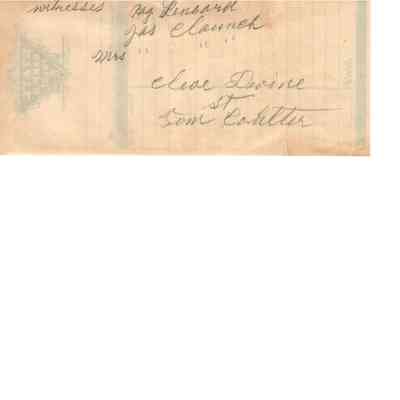 witnesses Ray Lenoard
Jas Claunch
Mrs " " "
Cleve Devine
St
Tom Coulter